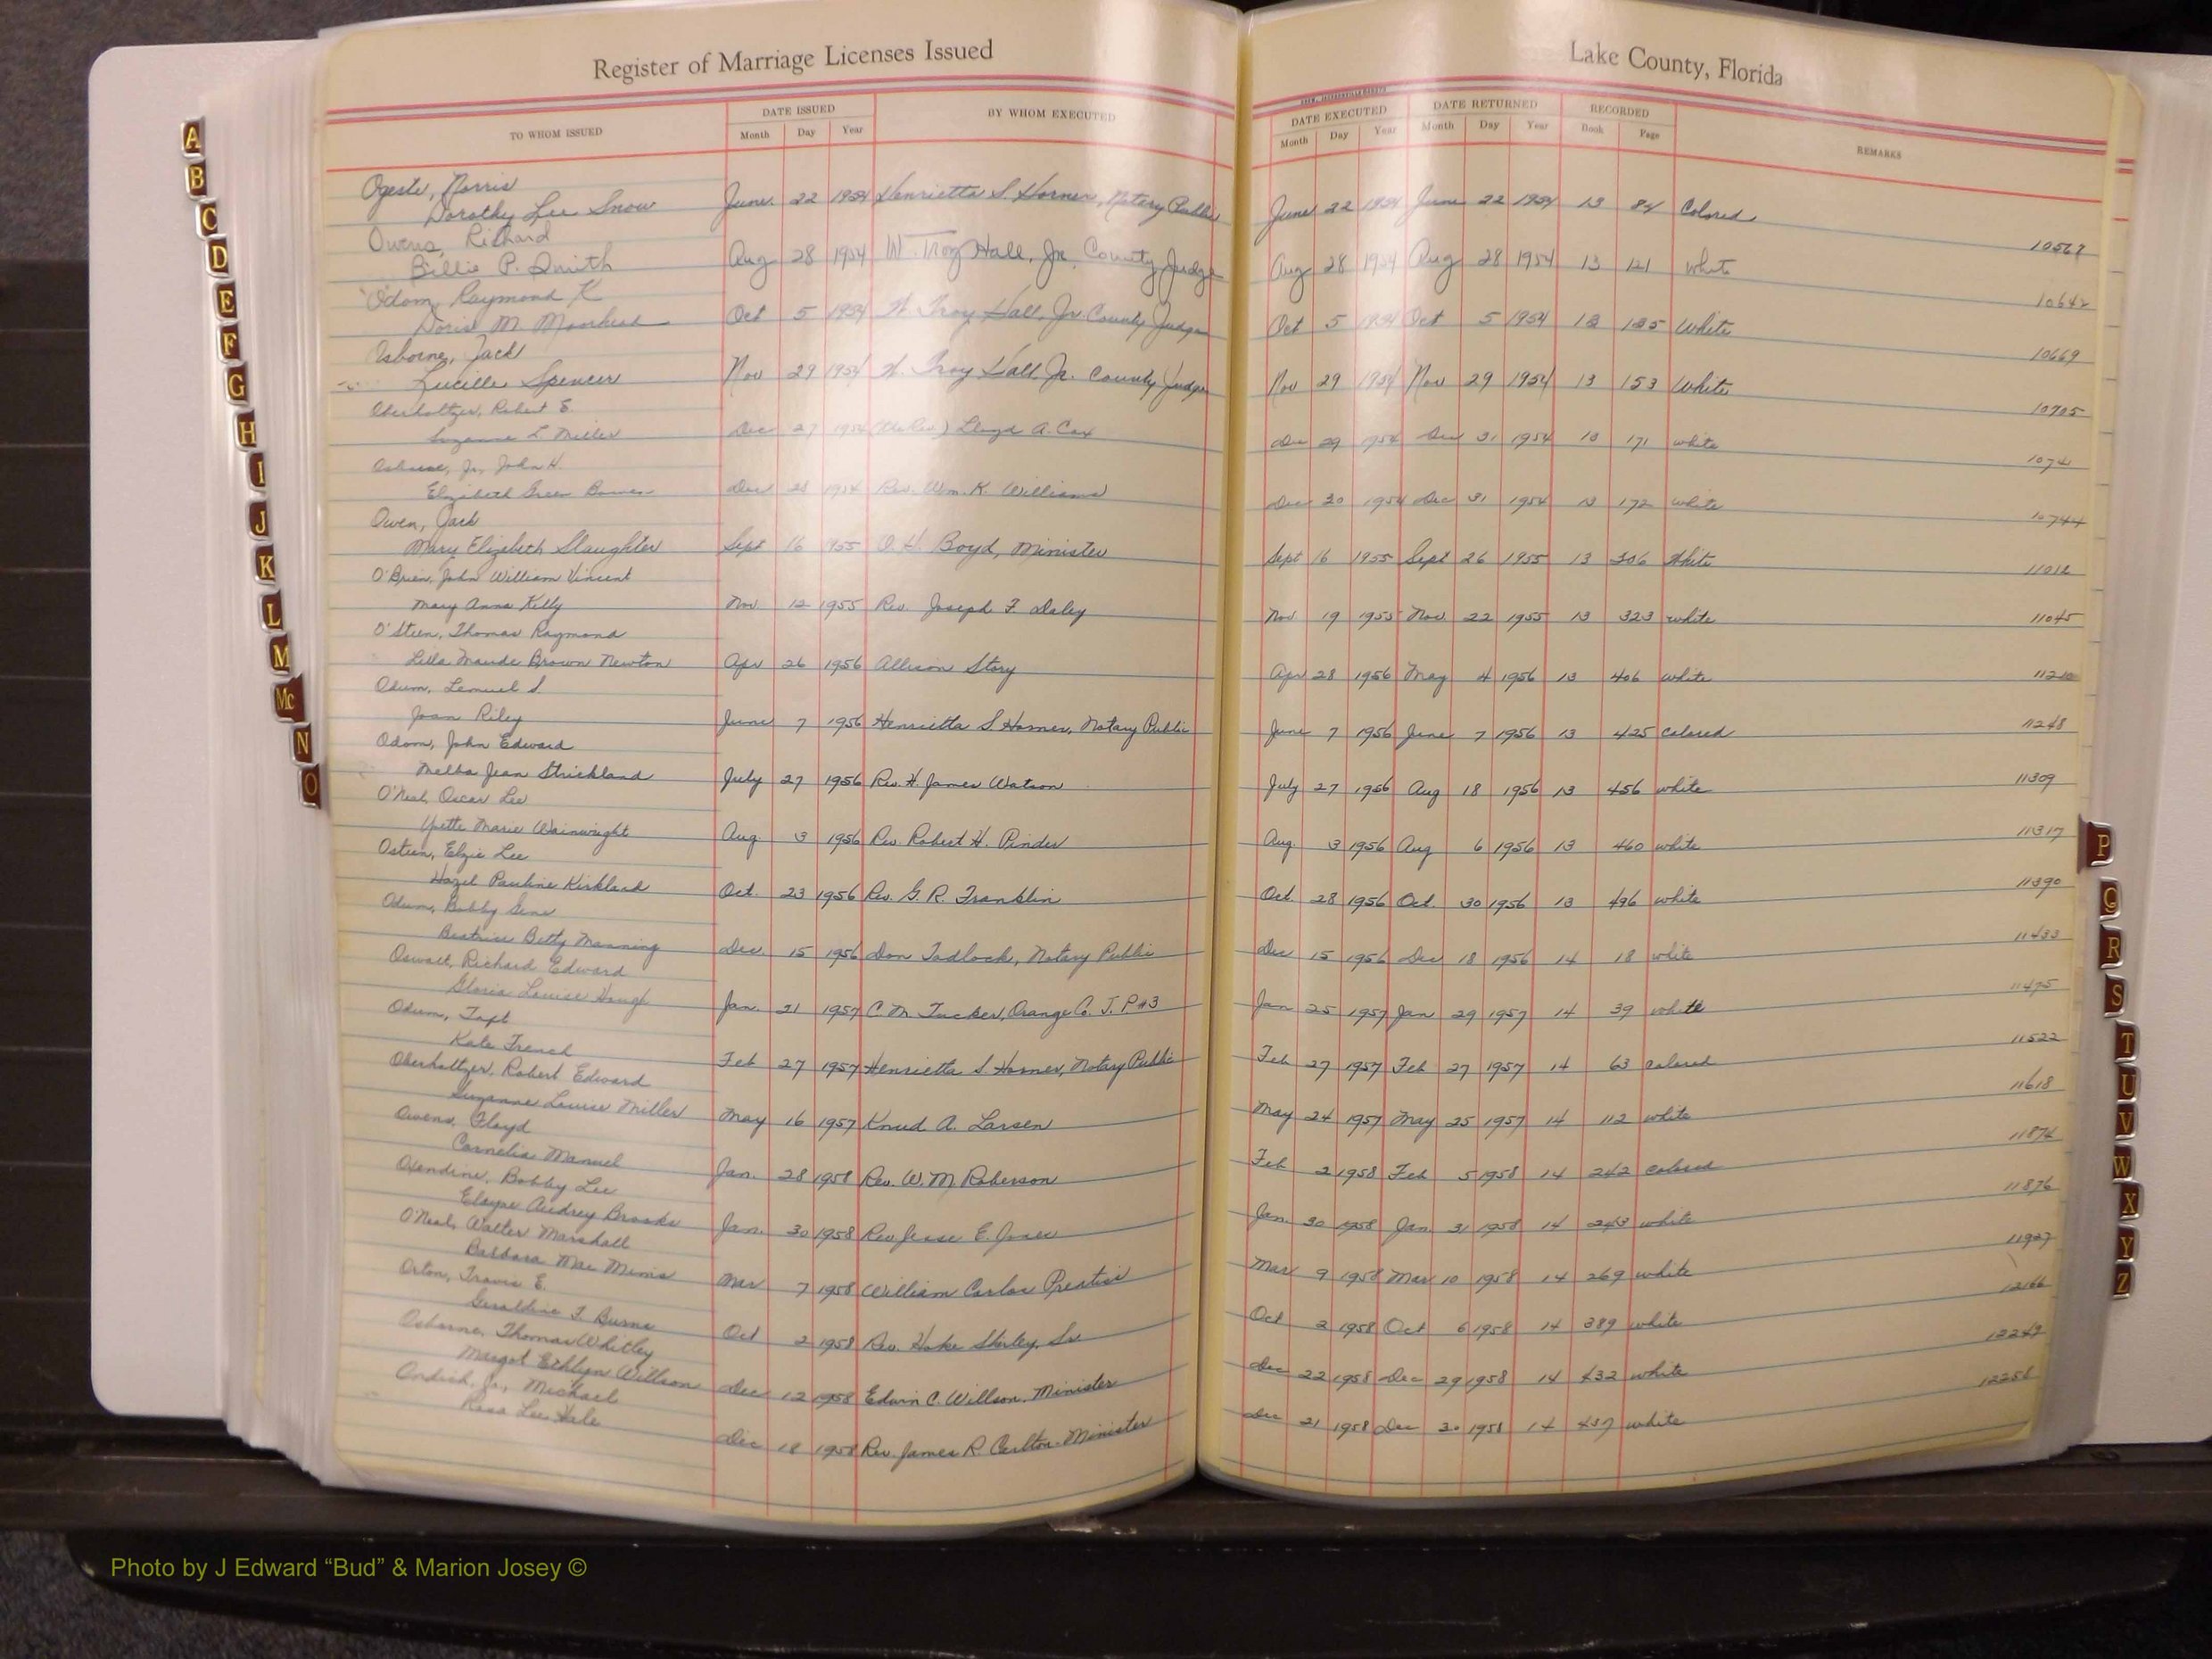 Register of Marriage Licenses Issued
Lake County, Florida
TO WHOM ISSUED
DATE ISSUED
Month Day Year
BY WHOM EXECUTED
DATE EXECUTED
Month Day Year
DATE RETURNED
Month Day Year
RECORDED
Book Page
REMARKS
Norris
Dorothy Lee Snow June 22 1954 Henrietta S. Horner, Notary Public June 22 1954 June 22 1954 13 84 Colored
Owens, Richard
Billie P. Smith Aug 28 1954 W. Troy Hall, Jr. County Judge Aug 28 1954 Aug 28 1954 13 121 White 10642
Odom, Raymond K
Doris M. Moorhead Oct 5 1954 W. Troy Hall, Jr. County Judge Oct 5 1954 Oct 5 1954 13 White 10669
Osborne, Jack
Lucille Spencer Nov 29 1954 W. Troy Hall, Jr. County Judge Nov 29 1954 Nov 29 1954 13 153 White 10705
Oberholtzer, Robert E.
Suzanne L Miller Dec 27 1954 Lloyd A. Cox Dec 29 1954 Dec 31 1954 13 171 white
Jr, John H.
Elizabeth Green Dec 1954 Rev. Wm. K. Williams Dec 30 1954 Dec 31 1954 13 172 white 10744
Owen, Jack
Mary Elizabeth Slaughter Sept 16 1955 O. H. Boyd, Minister Sept 16 1955 Sept 26 1955 13 306 White 11012
O'Brien, John William Vincent
Mary Anna Kelly Nov. 12 1955 Rev. Joseph F. Daley Nov 19 1955 Nov. 22 1955 13 323 white 11045
O'Steen, Thomas Raymond
Lilla Maude Brown Newton Apr 26 1956 Allison Story Apr 28 1956 May 4 1956 13 406 white 11210
Odum, Lemuel S.
Joan Riley June 7 1956 Henrietta S Horner, Notary Public June 7 1956 June 7 1956 13 425 colored 11248
Odom, John Edward
Melba Jean Strickland July 27 1956 Rev. H. James Watson July 27 1956 Aug 18 1956 13 456 white 11309
O'Neal, Oscar Lee
Yvette Marie Wainwright Aug. 3 1956 Rev. Robert H. Pinder Aug. 3 1956 Aug 6 1956 13 460 white 11317
Osteen, Elzie Lee
Hazel Pauline Kirkland Oct. 23 1956 Rev. G. R. Franklin Oct. 28 1956 Oct. 30 1956 13 496 white 11390
Odum, Bobby Gene
Beatrice Betty Manning Dec. 15 1956 Don Tadlock, Notary Public Dec 15 1956 Dec 18 1956 14 18 white 11433
Oswalt, Richard Edward
Gloria Louise Hough Jan. 21 1957 C. M. Tucker, Orange Co. J. P #3 Jan 25 1957 Jan 29 1957 14 39 white 11475
Odum, Taft
Kate French Feb 27 1957 Henrietta S. Horner, Notary Public Feb 27 1957 Feb 27 1957 14 63 colored 11522
Oberholtzer, Robert Edward
Suzanne Louise Miller May 16 1957 Knud A. Larsen May 24 1957 May 25 1957 14 112 white 11618
Owens, Floyd
Cornelia Manuel Jan. 28 1958 Rev. W. M. Roberson Feb 2 1958 Feb 5 1958 14 242 colored 11874
Oxendine, Bobby Lee
Elayne Audrey Brooks Jan. 30 1958 Rev. Jesse E. Jones Jan. 30 1958 Jan. 31 1958 14 243 white 11876
O'Neal, Walter Marshall
Barbara Mae Mar 7 1958 William Carlos Prentis Mar 9 1958 Mar 10 1958 14 269 white 11927
Orton, Travis E.
Geraldine F. Burns Oct 2 1958 Rev. Hoke Shirley, Sr. Oct 2 1958 Oct 6 1958 14 389 white 12166
Osborne, Thomas Whitley
Margot Ethlyn Willson Dec 12 1958 Edwin C. Willson, Minister Dec 22 1958 Dec 29 1958 14 432 white 12249
Jr., Michael
Rosa Lee Hale Dec 18 1958 Rev. James R. Carlton, Minister Dec 21 1958 Dec 30 1958 14 437 white 12258
A
B
C
D
E
F
G
H
I
J
K
L
M
Mc
N
O
P
Q
R
S
T
U
V
W
X
Y
Z
Photo by J Edward “Bud” & Marion Josey ©